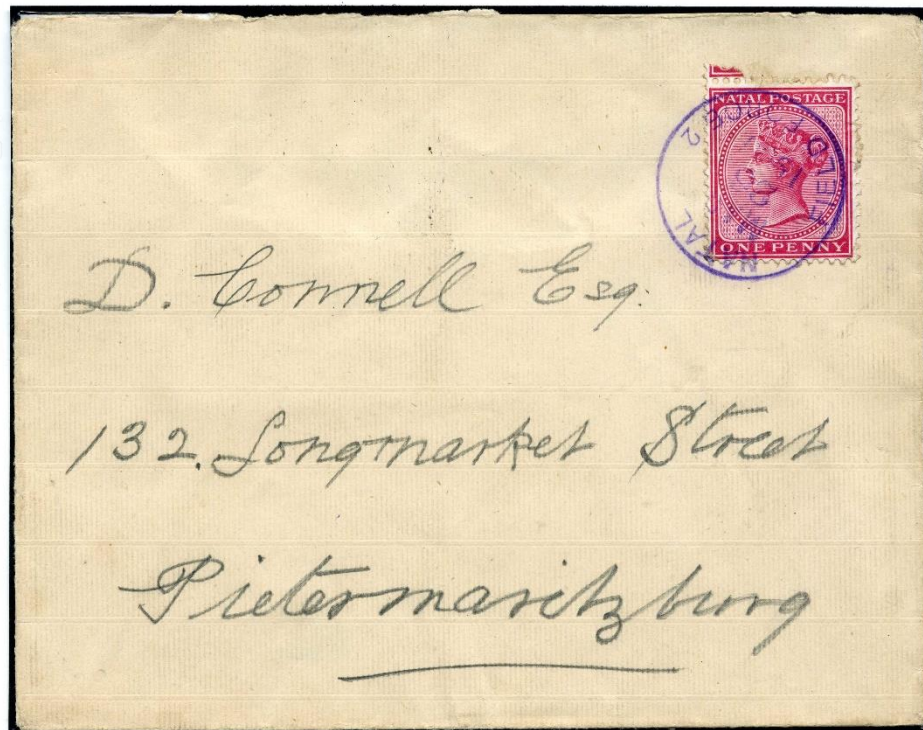 NATAL POSTAGE
ONE PENNY
NATAL FIELD FORCE 2
D. Connell Esq.
132. Longmarket Street
Pietermaritzburg